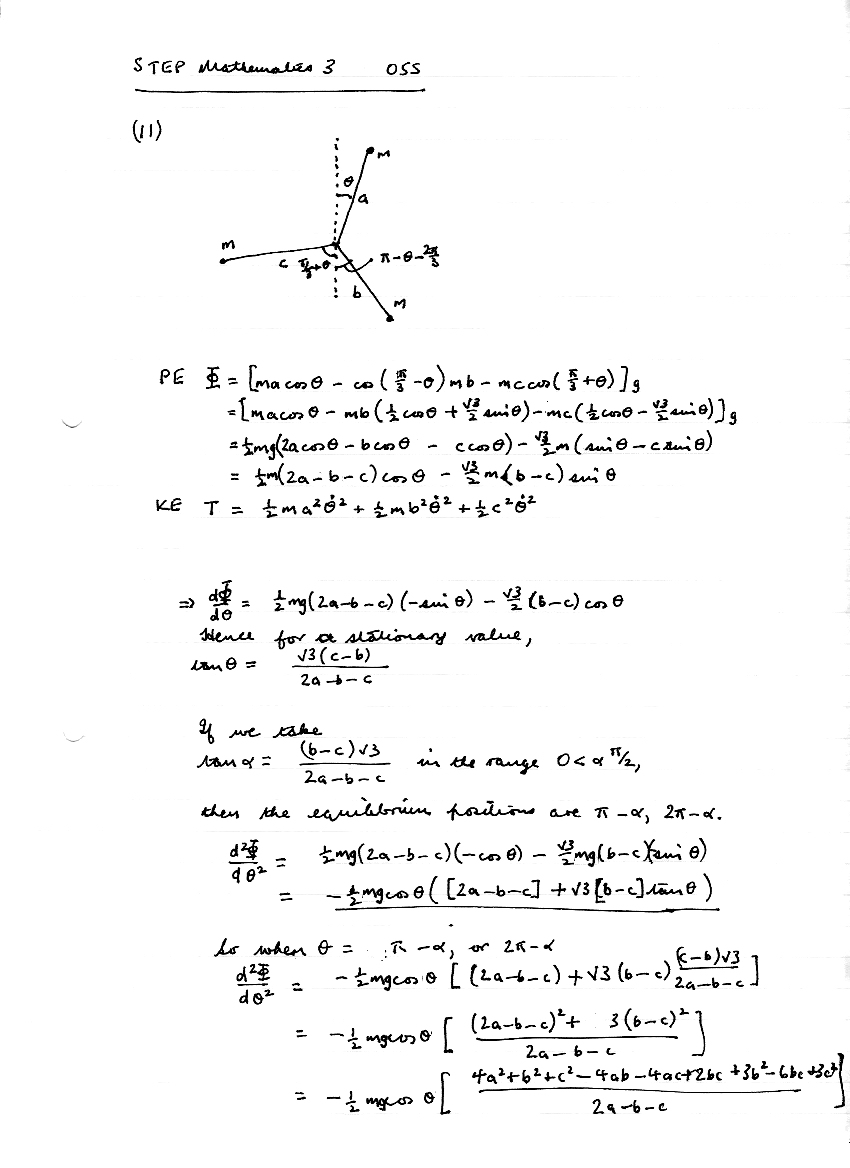 STEP Mathematics 3 OSS
(11)
m
θ
a
m
c π/3+θ
π-θ-2π/3
b
m
PE Φ = [ma cos θ - cos(π/3 -θ)mb - mc cos(π/3+θ)]g
= [ma cos θ - mb(½ cos θ + √3/2 sin θ) - mc(½ cos θ - √3/2 sin θ)]g
= ½mg(2a cos θ - b cos θ - c cos θ) - √3/2 m(sin θ - c sin θ)
= ½m(2a - b - c) cos θ - √3/2 m(b-c) sin θ
KE T = ½ma²θ̇² + ½mb²θ̇² + ½c²θ̇²
⇒ dΦ/dθ = ½mg(2a-b-c)(-sin θ) - √3/2 (b-c) cos θ
Hence for a stationary value,
tan θ = √3(c-b)/2a-b-c
If we take
tan α = (b-c)√3/2a-b-c in the range 0<α π/2,
then the equilibrium positions are π-α, 2π-α.
d²Φ/dθ² = ½mg(2a-b-c)(-cos θ) - √3/2 mg(b-c)(sin θ)
= -½mg cos θ([2a-b-c] + √3[b-c] tan θ)
So when θ = π-α, or 2π-α
d²Φ/dθ² = -½mg cos θ [(2a-b-c) + √3(b-c) (c-b)√3/2a-b-c]
= -½mg cos θ [(2a-b-c)² + 3(b-c)²/2a-b-c]
= -½mg cos θ [4a²+b²+c²-4ab-4ac+2bc+3b²-6bc+3c²/2a-b-c]